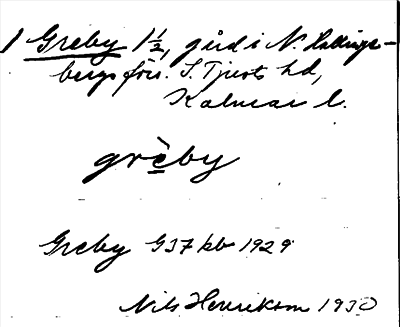 1 Greby 1½, gård i N. Ratlings-
bergs förs. S. Tjusts hd,
Kalmar l.
grèby
Greby G37 kb 1929
Nils Henrikson 1930